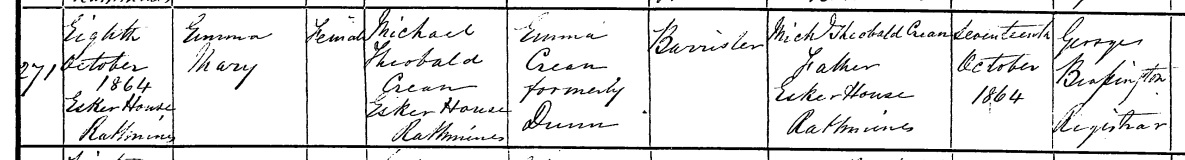 271
Eighth
October
1864
Esker House
Rathmines
Emma
Mary
Female
Michael
Theobald
Crean
Esker House
Rathmines
Emma
Crean
formerly
Dunn
Barrister
Mich Theobald Crean
Father
Esker House
Rathmines
Seventeenth
October
1864
George
Registrar